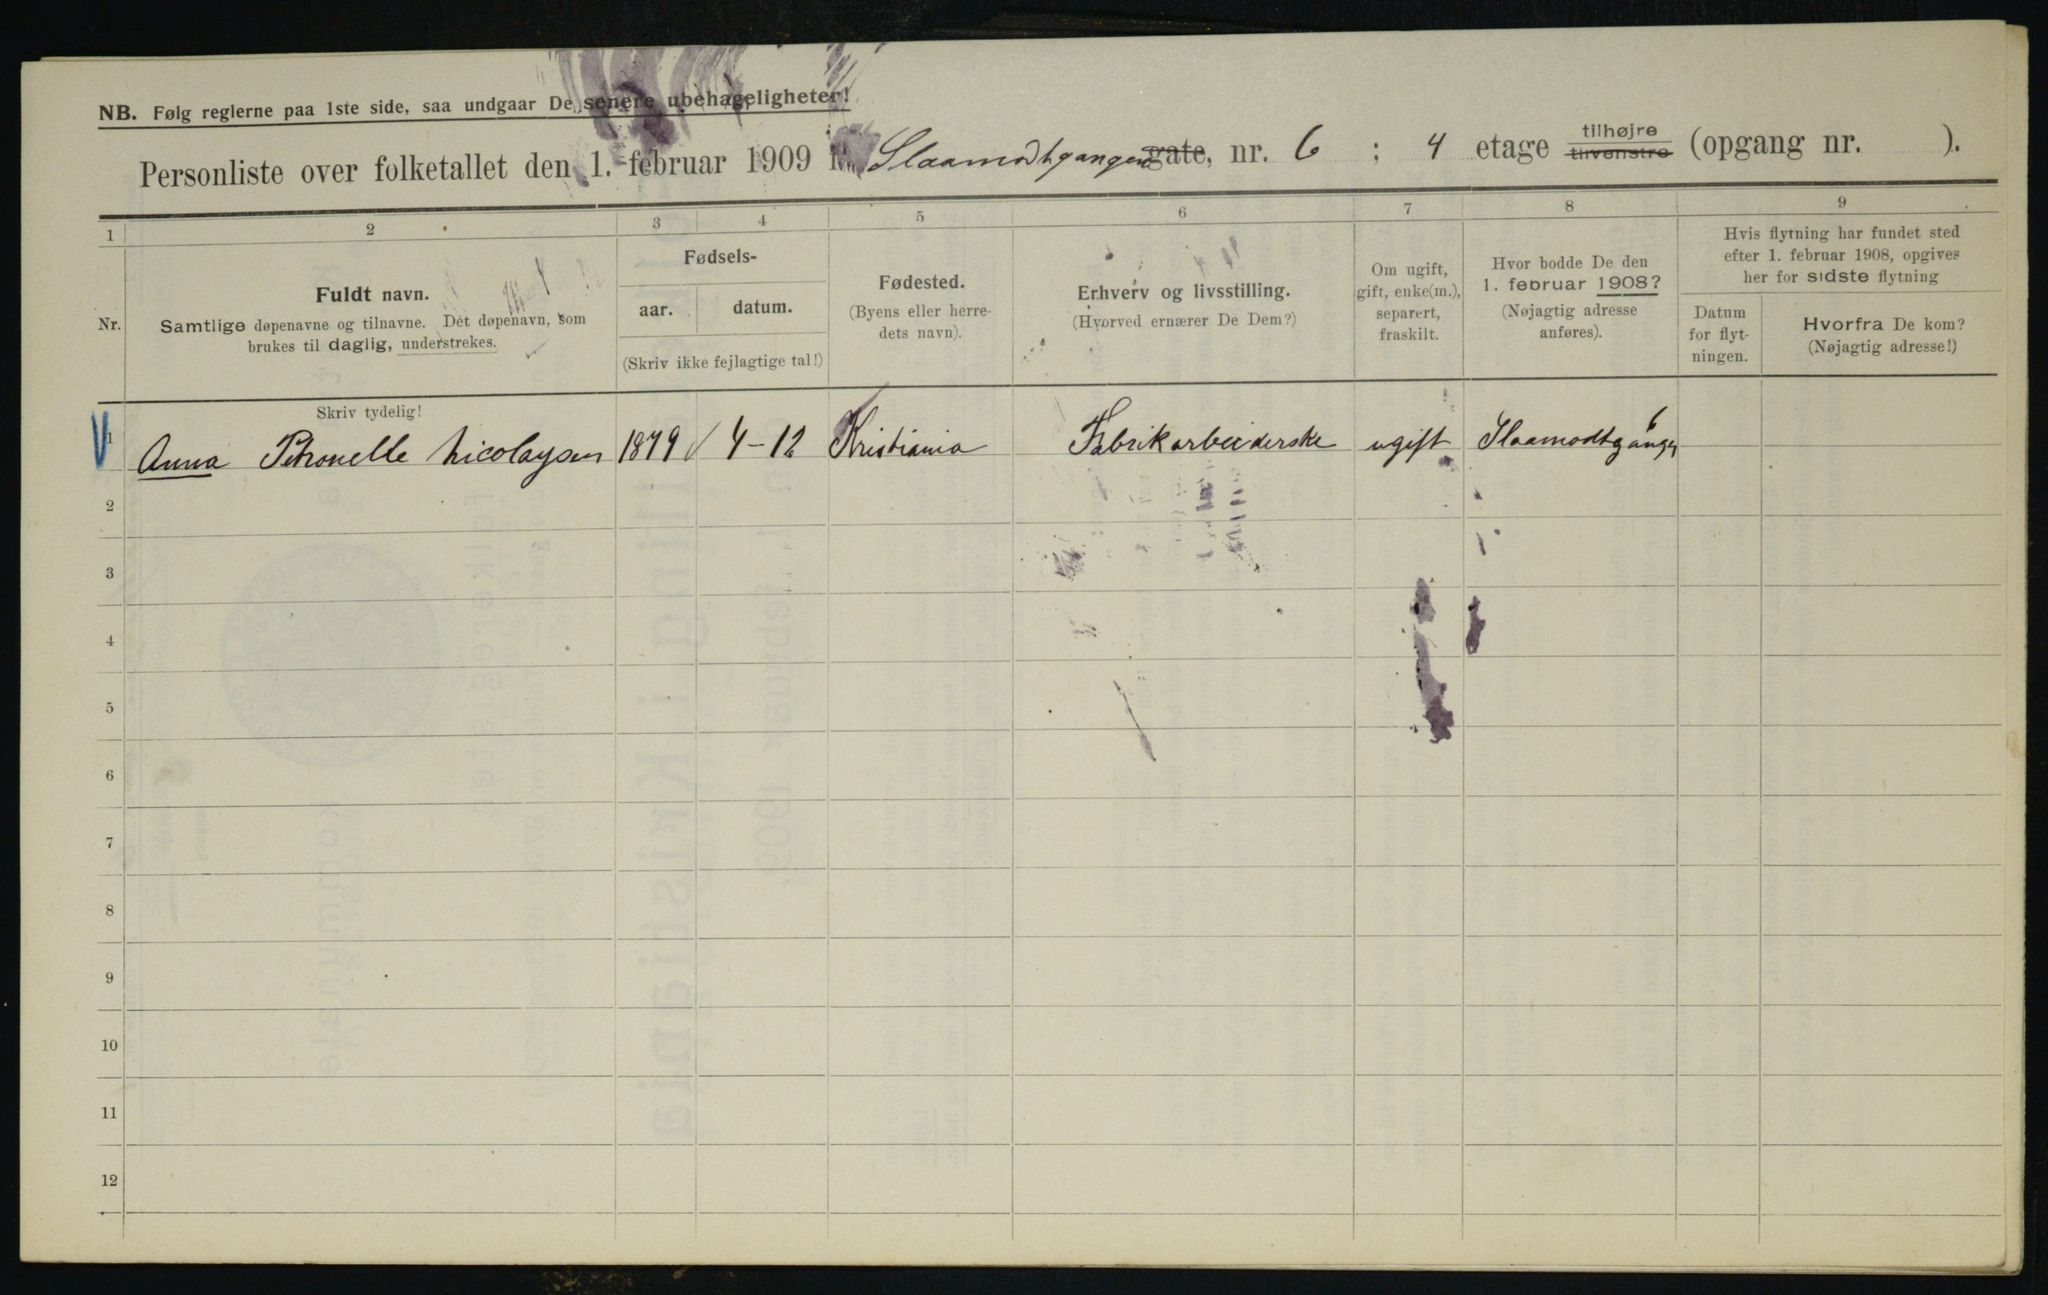 NB. Følg reglerne paa 1ste side, saa undgaar De senere ubehageligheter!
Personliste over folketallet den 1. februar 1909 i Slaamodtgangen gate, nr. 6 ; 4 etage tilhøjre tilvenstre (opgang nr. ).
1 2 3 4 5 6 7 8 9
Nr.
Fuldt navn.
Samtlige døpenavne og tilnavne. Det døpenavn, som
brukes til daglig, understrekes.
Fødsels-
aar. datum.
(Skriv ikke fejlagtige tal!)
Fødested.
(Byens eller herre-
dets navn).
Erhverv og livsstilling.
(Hvorved ernærer De Dem?)
Om ugift,
gift, enke(m.),
separert,
fraskilt.
Hvor bodde De den
1. februar 1908?
(Nøjagtig adresse
anføres).
Hvis flytning har fundet sted
efter 1. februar 1908, opgives
her for sidste flytning
Datum
for flyt-
ningen.
Hvorfra De kom?
(Nøjagtig adresse!)
Skriv tydelig!
1 Anna Petronelle Nicolaysen 1879 4-12 Kristiania Fabrikarbeiderske ugift Slaamodtgangen 6
2
3
4
5
6
7
8
9
10
11
12